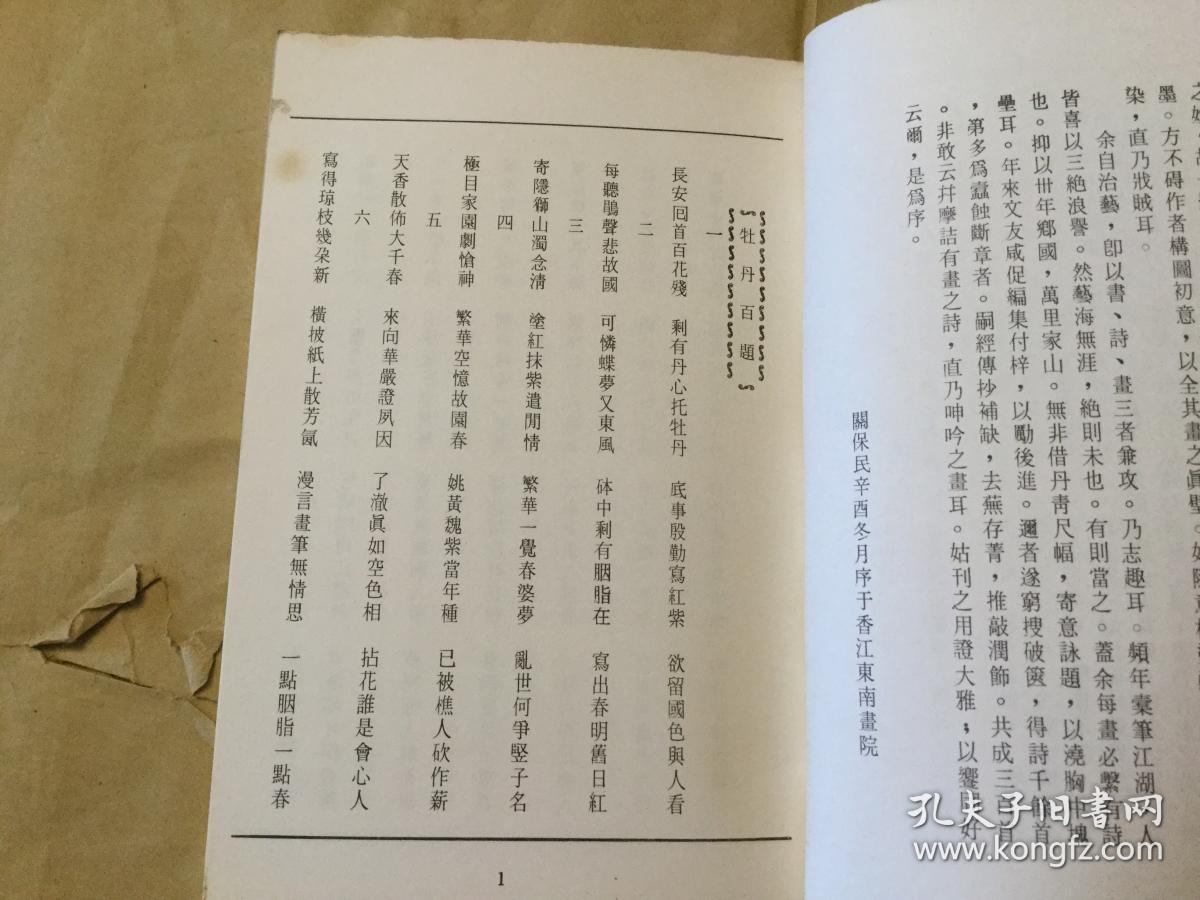 墨。方不碍作者構圖初意，以全其畫之眞璧。
染，直乃戕賊耳。
余自治藝，卽以書、詩、畫三者兼攻。乃志趣耳。頻年橐筆江湖，人
皆喜以三絕浪譽。然藝海無涯，絕則未也。有則當之。蓋余每畫必繫有詩
也。抑以卅年鄉國，萬里家山。無非借丹靑尺幅，寄意詠題，以澆胸中塊
壘耳。年來文友咸促編集付梓，以勵後進。邇者遂窮搜破篋，得詩千餘首
，第多爲蠧蝕斷章者。嗣經傳抄補缺，去蕪存菁，推敲潤飾。共成三百首
。非敢云幷摩詰有畫之詩，直乃呻吟之畫耳。姑刊之用證大雅；以饗同好
云爾，是爲序。
關保民辛酉冬月序于香江東南畫院
牡丹百題
一
長安囘首百花殘 剩有丹心托牡丹 底事殷勤寫紅紫 欲留國色與人看
二
每聽鵑聲悲故國 可憐蝶夢又東風 砵中剩有胭脂在 寫出春明舊日紅
三
寄隱獅山濁念淸 塗紅抹紫遣閒情 繁華一覺春婆夢 亂世何爭竪子名
四
極目家園劇愴神 繁華空憶故園春 姚黃魏紫當年種 已被樵人砍作薪
五
天香散佈大千春 來向華嚴證夙因 了澈眞如空色相 拈花誰是會心人
六
寫得琼枝幾朶新 橫披紙上散芳氤 漫言畫筆無情思 一點胭脂一點春
1
孔夫子旧書网
www.kongfz.com